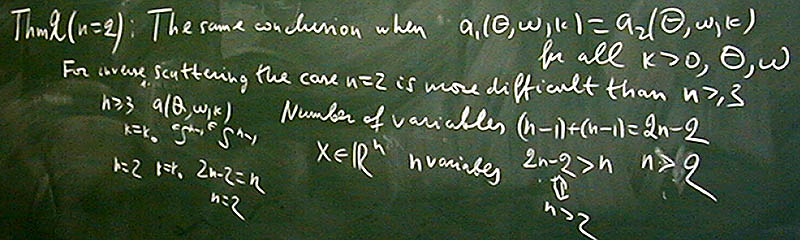 Thm 2 (n=2): The same conclusion when a₁(Θ,ω,k) = a₂(Θ,ω,k)
for all k>0, Θ, ω
For inverse scattering the case n=2 is more difficult than n≥3
n≥3 a(Θ,ω,k)
k=k₀ ∈Sⁿ⁻¹ ∈Sⁿ⁻¹
Number of variables (n-1)+(n-1)=2n-2
X∈ℝⁿ n variables 2n-2>n n≥2
⇕
n>2
n=2 k=k₀ 2n-2=n
n=2